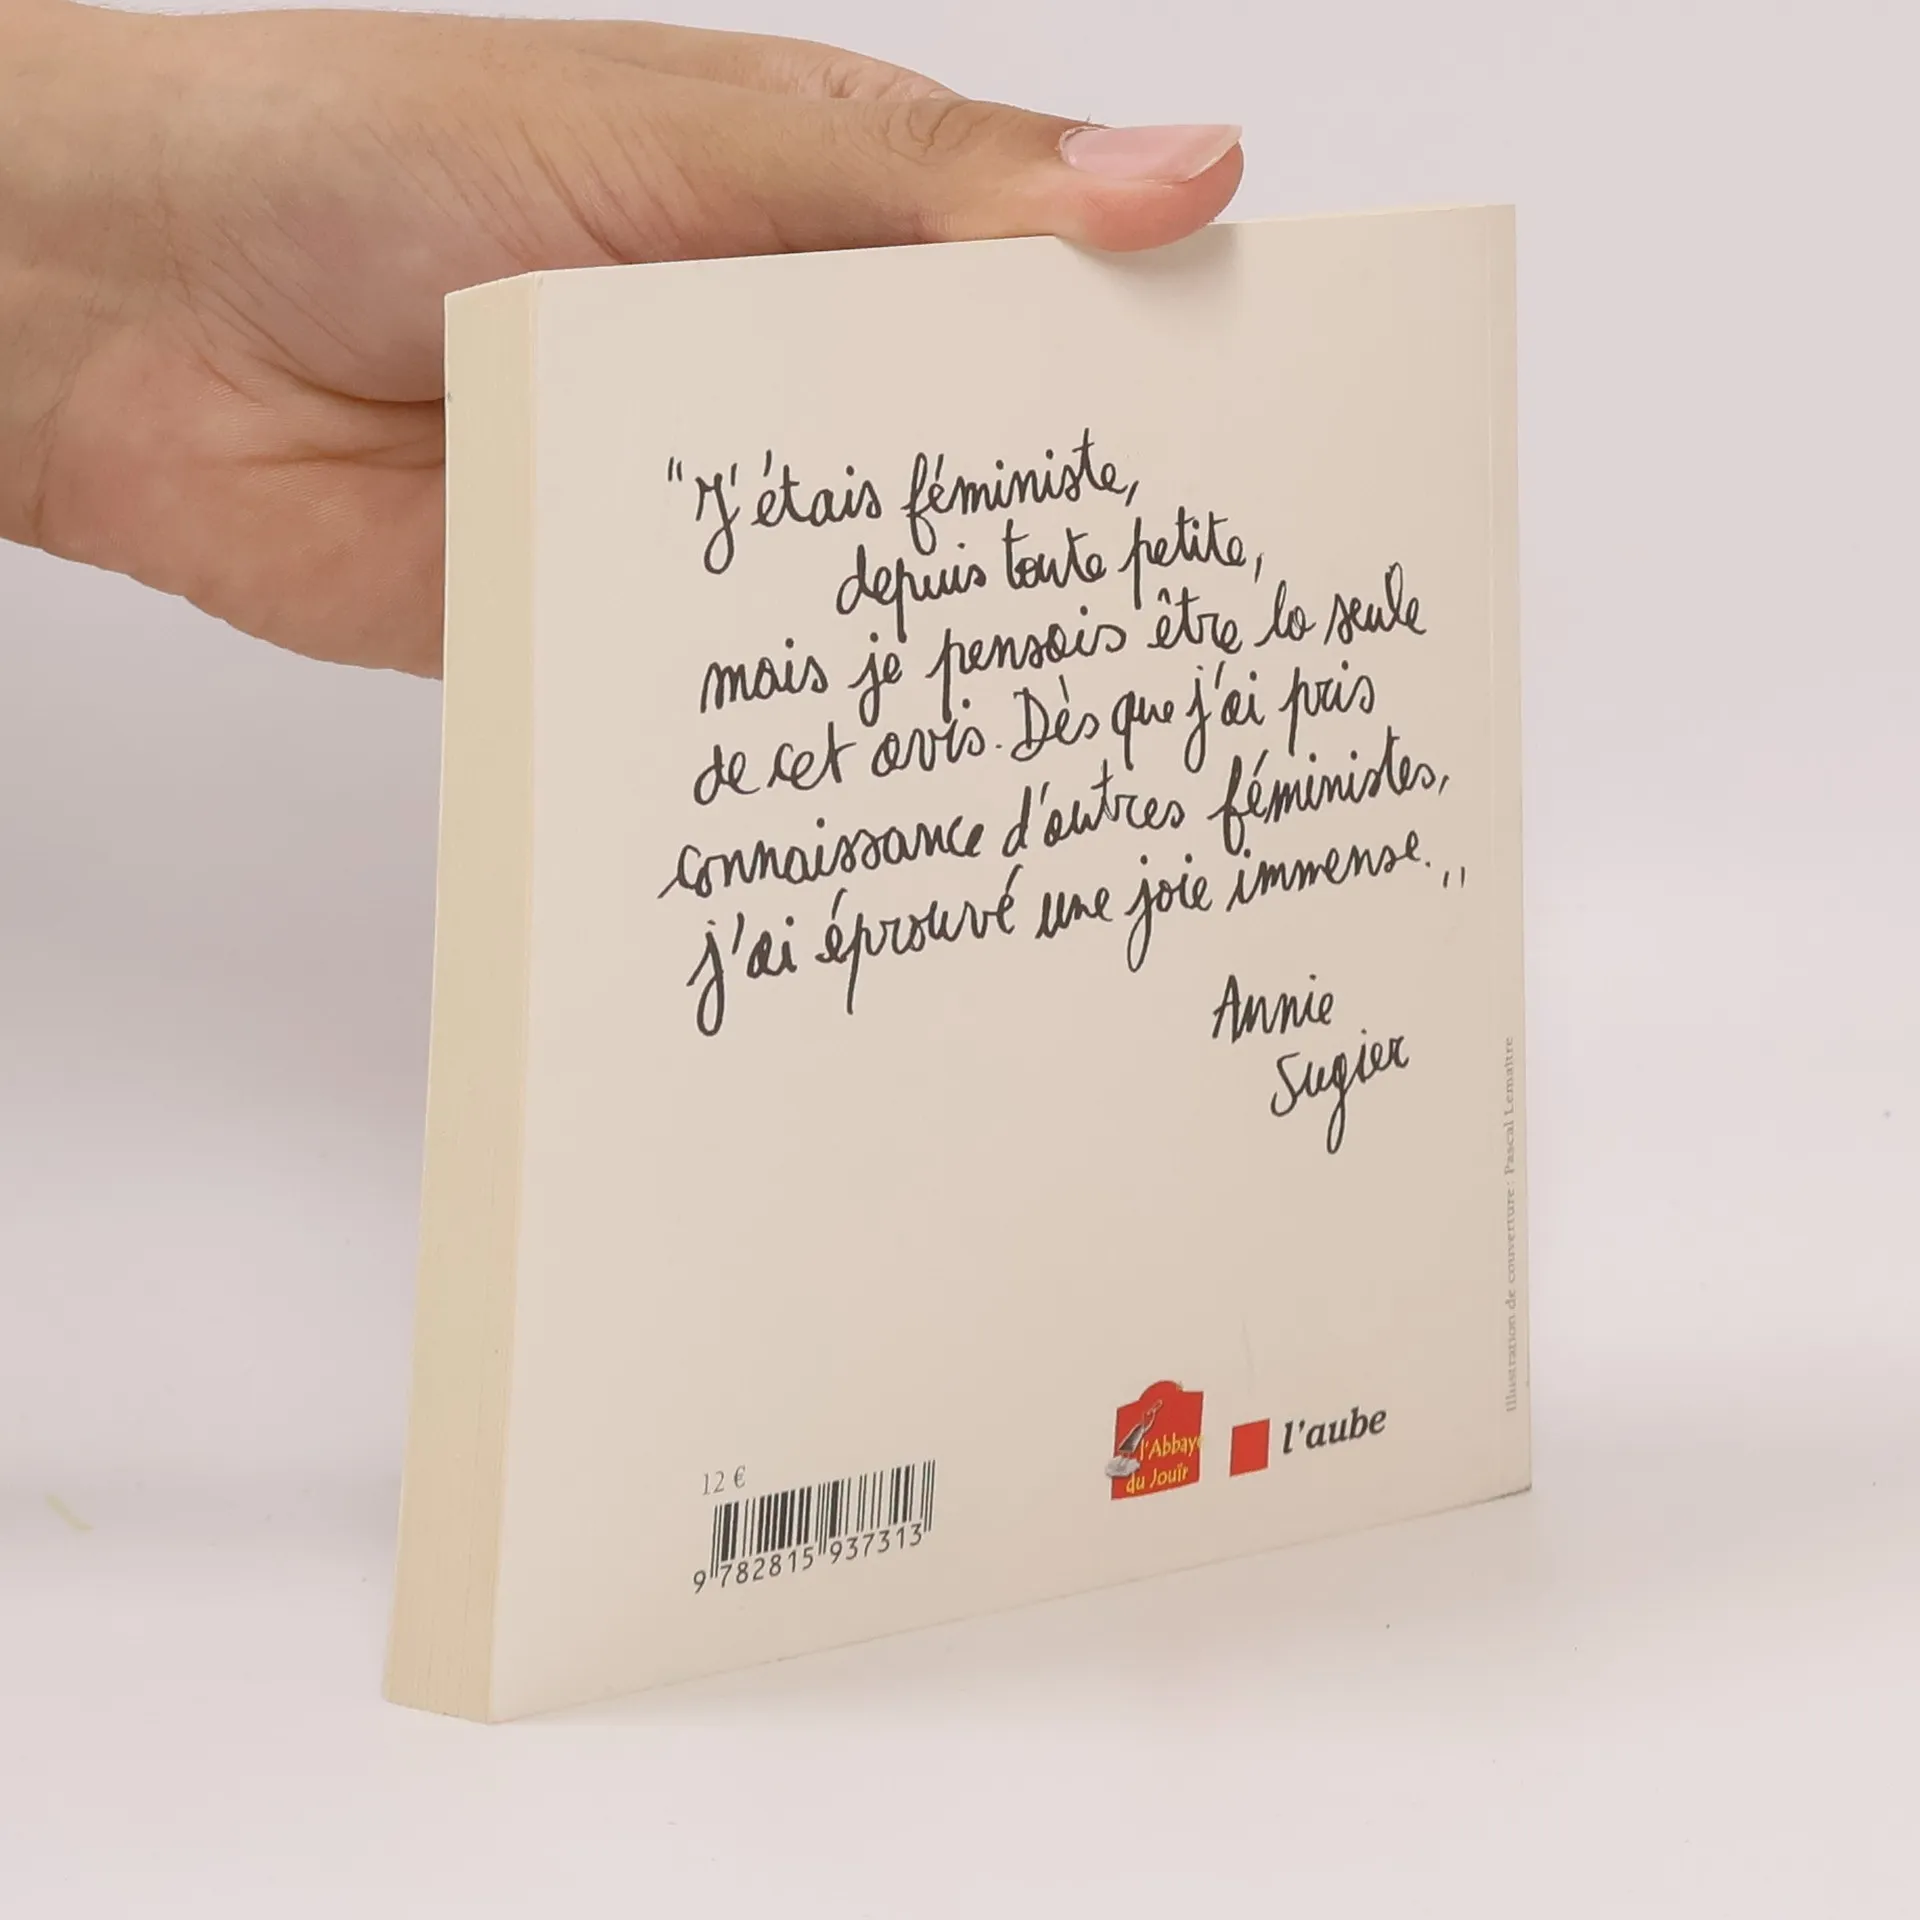 "J'étais féministe,
depuis toute petite,
mais je pensais être la seule
de cet avis. Dès que j'ai pris
connaissance d'autres féministes,
j'ai éprouvé une joie immense."
Annie
Sugier
Illustration de couverture : Pascal Lemaître
12 €
9 782815 937313
l'Abbaye
du Jouïr
l'aube